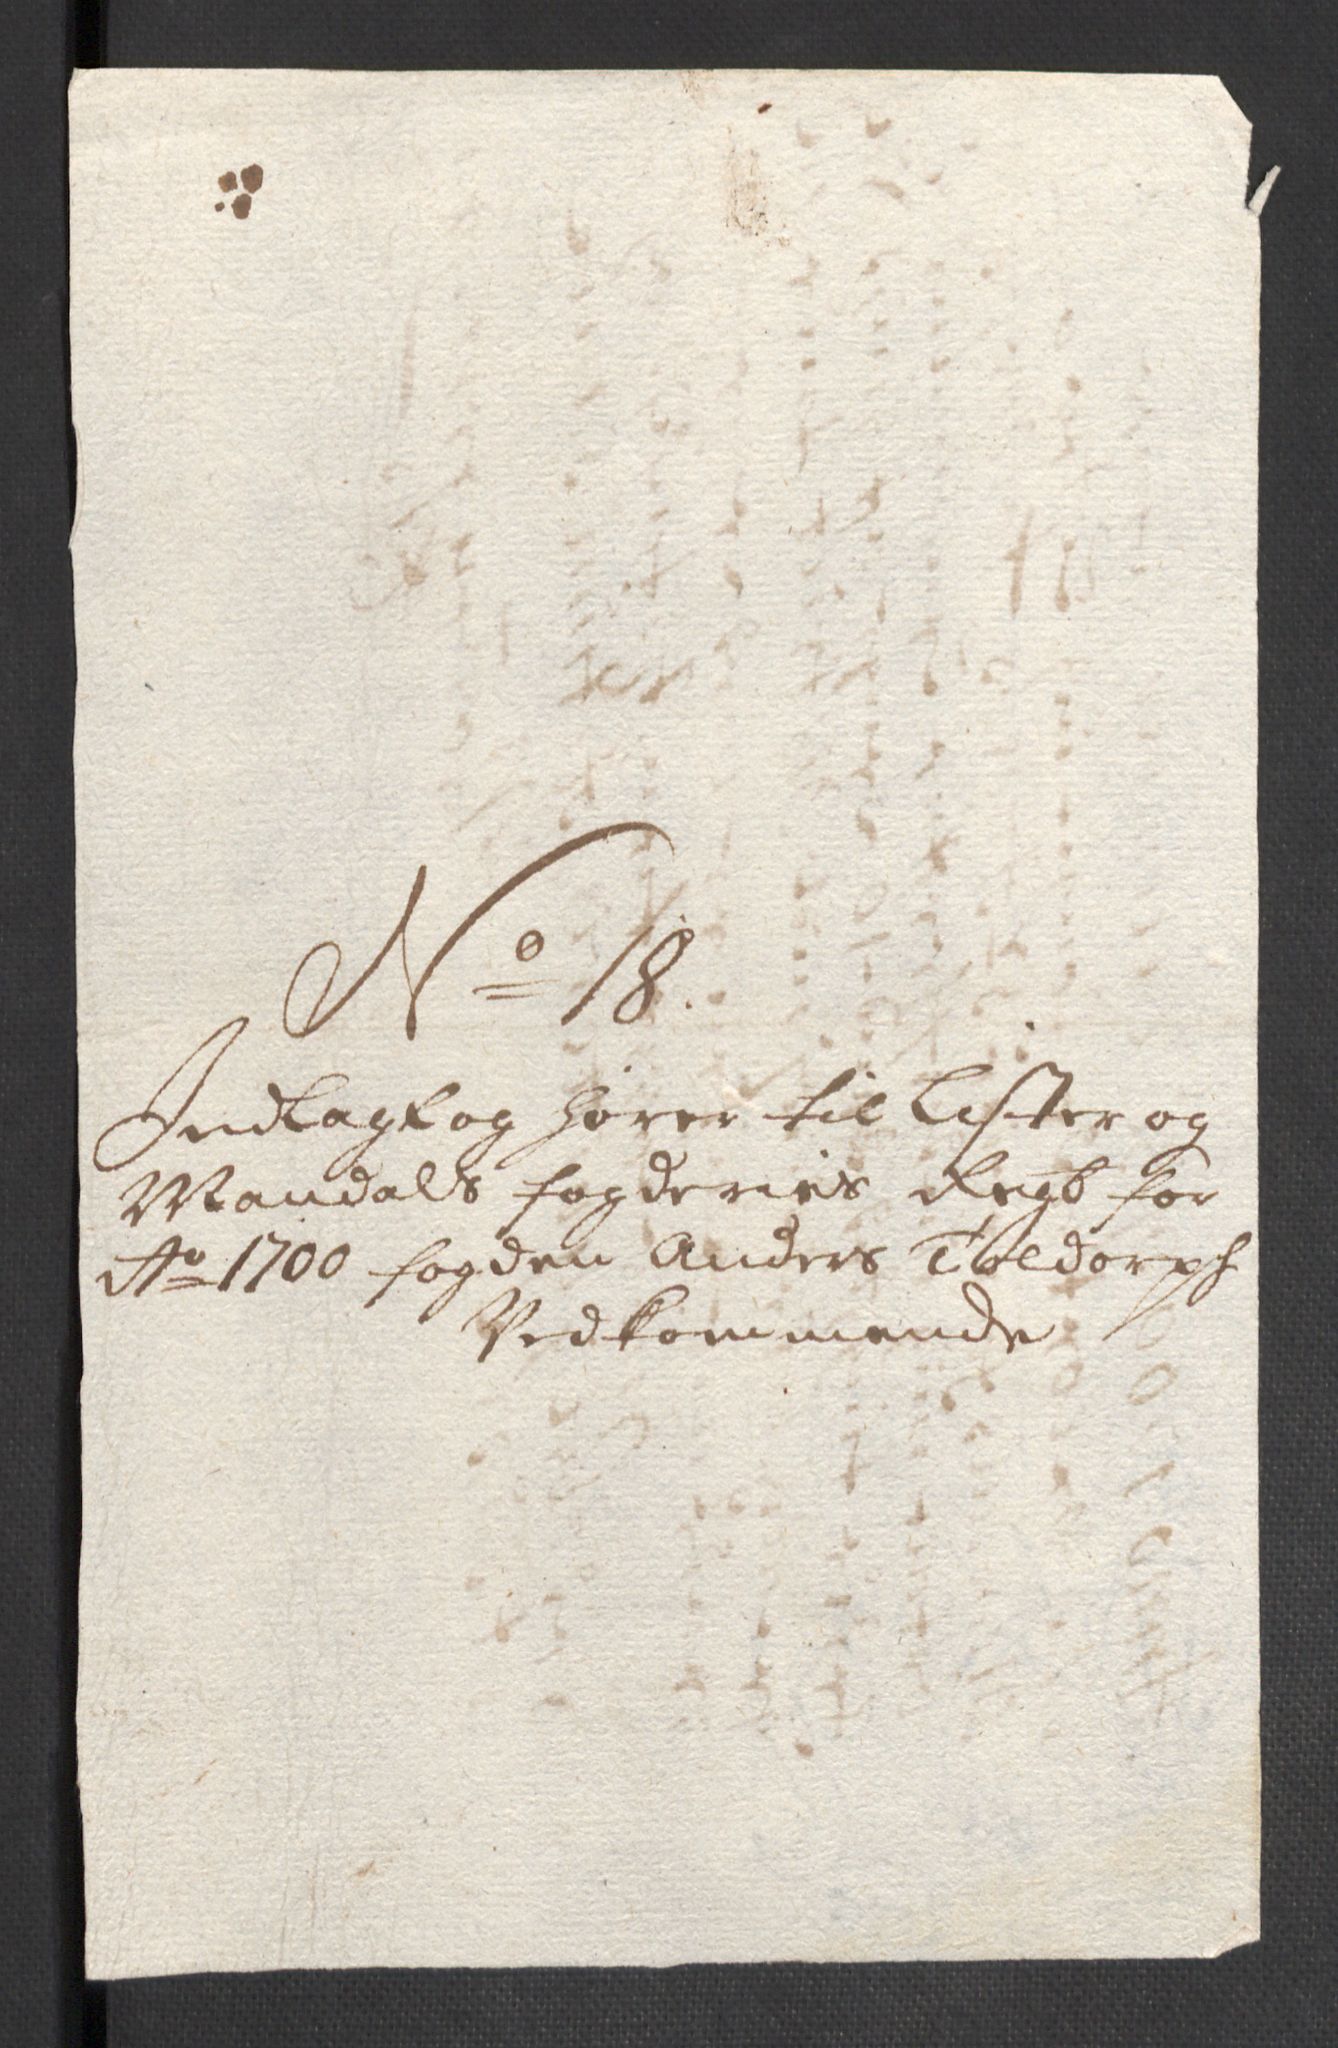 No 18.
Indlagt og hører til Lister og
Mandals fogderies Regb for
Ao 1700 fogden Anders Toldorph
Vedkommende